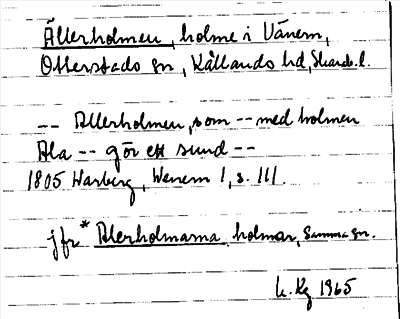 Ållerholmen, holme i Vänern,
Otterstads sn, Kållands hd, Skarab. l.
-- Allerholmen, som -- med holmen
Ala -- gör ett sund --
1805 Warberg, Wenern 1, s. 111.
jfr * Alerholmarna, holmar, samma sn.
1965